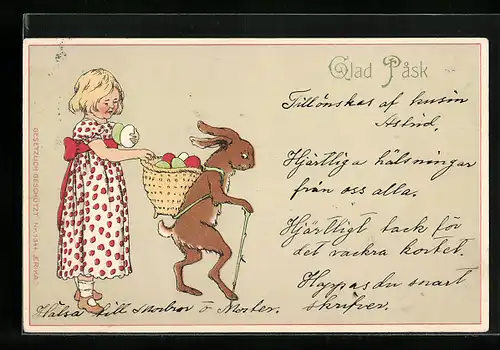 Glad Påsk
Tillönskas af kusin
Astrid.
Hjärtliga hälsningar
från oss alla.
Hjärtligt tack för
det vackra kortet.
Hoppas du snart
skrifver.
Hälsa till Morbror o Moster.
GESETZLICH GESCHÜTZT No. 1344 "ERIKA"